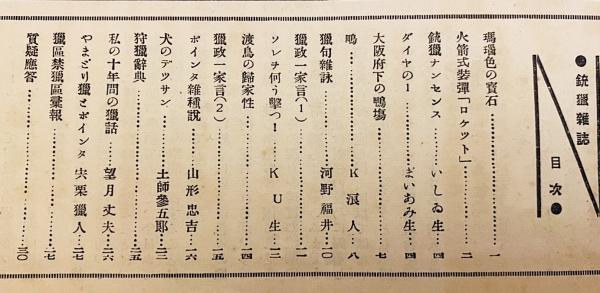 ●銃獵雜誌
目次●
瑪瑙色の寳石……一
火箭式裝彈「ロケツト」……二
銃獵ナンセンス……いしゐ生…四
ダイヤの1……まいあみ生…四
大阪府下の鴨塲……七
鴫……K浪人…八
獵句雜詠……河野福井…一〇
獵政一家言(1)……一一
ソレチ何う擊つ!……KU生…一二
渡鳥の歸家性……一四
獵政一家言(2)……一五
ポインタ雜種說……山形忠吉…一六
犬のデツサン……土師參五郎…二二
狩獵辭典……二五
私の十年間の獵話……望月丈夫…二六
やまどり獵とポインタ……宍栗獵人…二七
獵區禁獵區彙報……二七
質疑應答……三〇